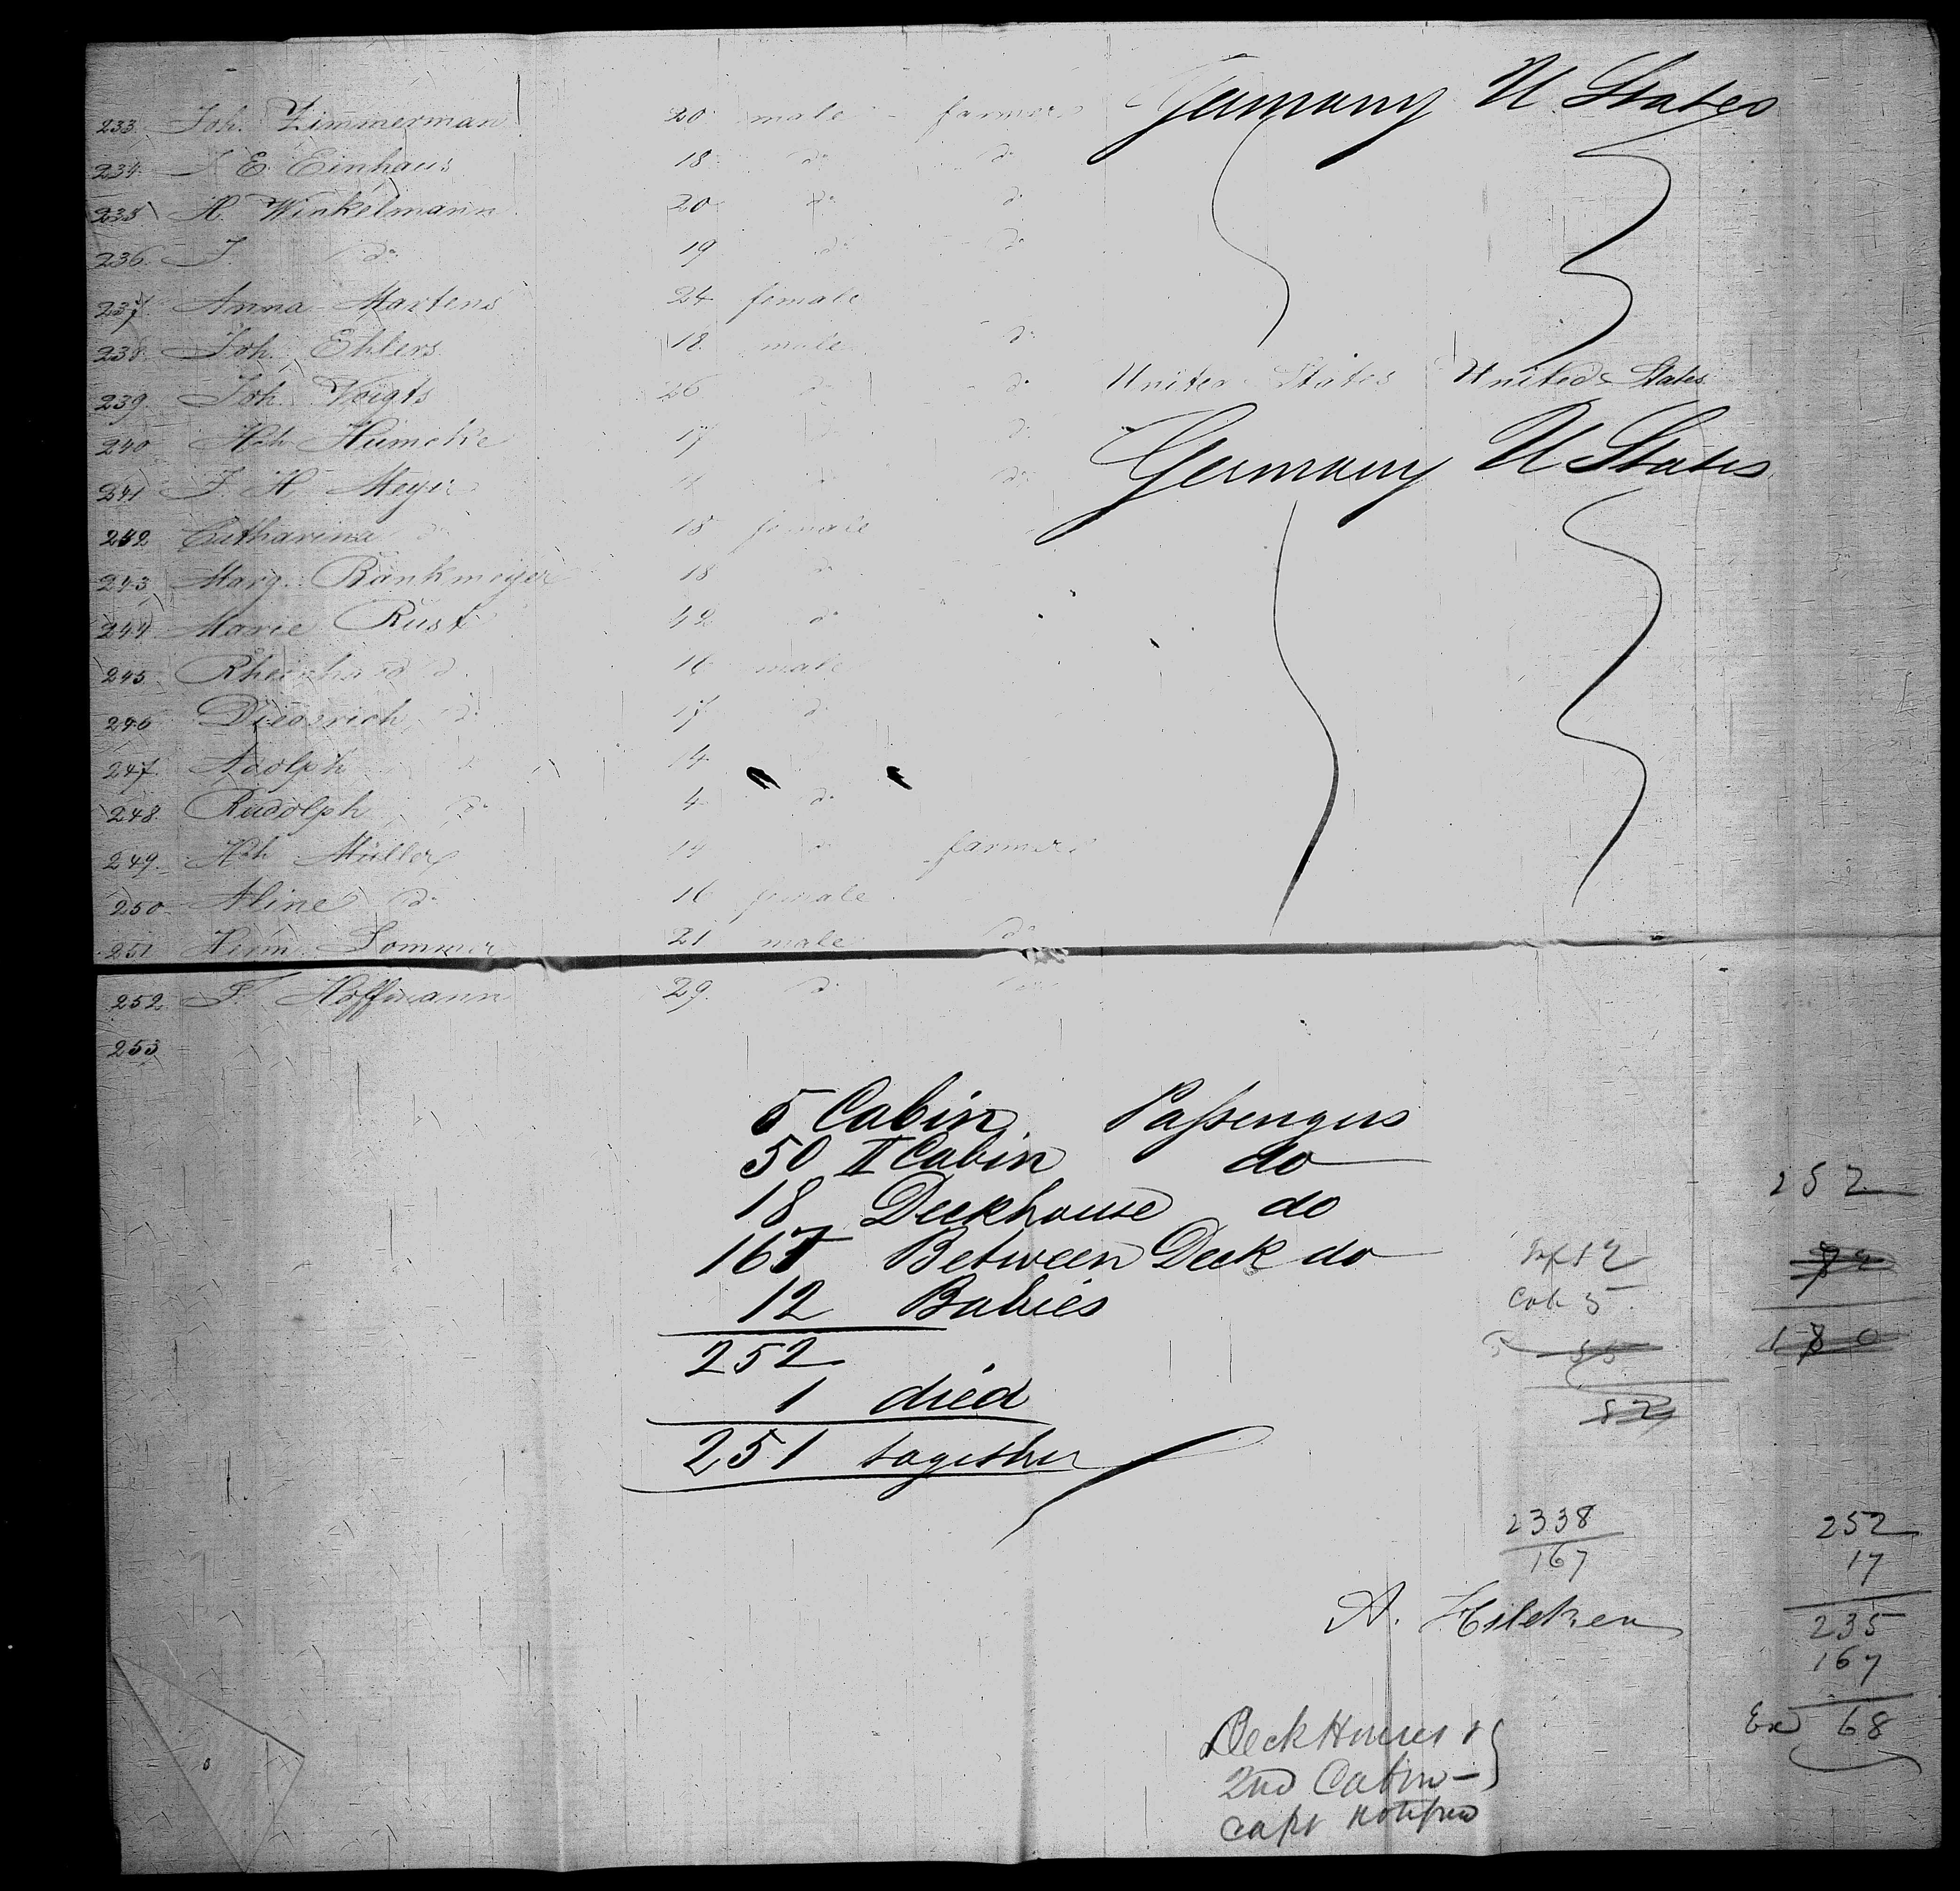 233. Joh. Zimmerman 20 male farmer Germany U States
234. J E Einhaus 18 do do
235 H. Winkelmann 20 do do
236. J. do 19 do do
237. Anna Martens 24 female
238. Joh. Ehlers 18 male do
239. Joh. Voigts 26 do do United States United States
240 Hch 17 do Germany U States
241 J. H. Meyer do
242 Catharina do 18 female
243 Marg. Bankmeyer 18 do
244 Marie Rust 42 do
245 Rheinhard do 16 male
246 Diederich do 17 do
247. Adolph 14
248. Rudolph do 4 do
249. Hch Müller 19 do farmer
250 Aline do 16 female
251 Herm. Sommer 21 male do
252. F. Hoffmann 29. do
253
5 Cabin Passengers
50 II Cabin do
18 Deckhouse do
167 Between Deck do
12 Babies
252
1 died
251 together
252
Inf 12
Cab 5
180
2338
167
252
17
235
167
68
A.
Deck Houses &
2nd Cabin
capt notified